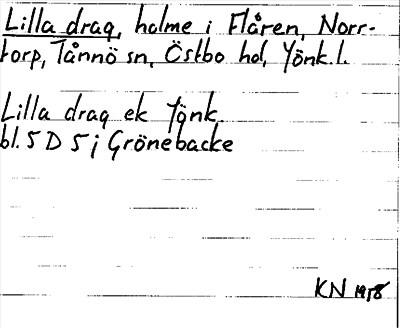 Lilla drag, holme i Flåren, Norr-
torp, Tånnö sn, Östbo hd, Jönk. l.
Lilla drag ek Jönk.
bl. 5 D 5 j Grönebacke
KN 1958